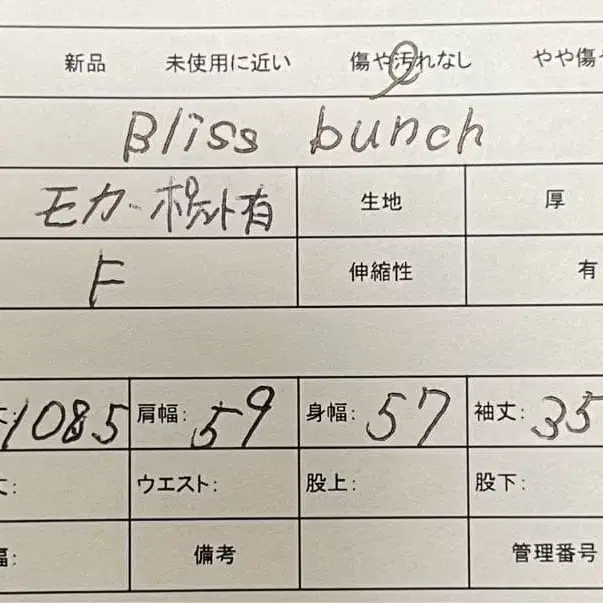 新品 未使用に近い 傷や汚れなし やや傷
Bliss bunch
モカ-ポケット有 生地 厚
F 伸縮性 有
丈: 1085 肩幅: 59 身幅: 57 袖丈: 35
丈: ウエスト: 股上: 股下:
幅: 備考 管理番号